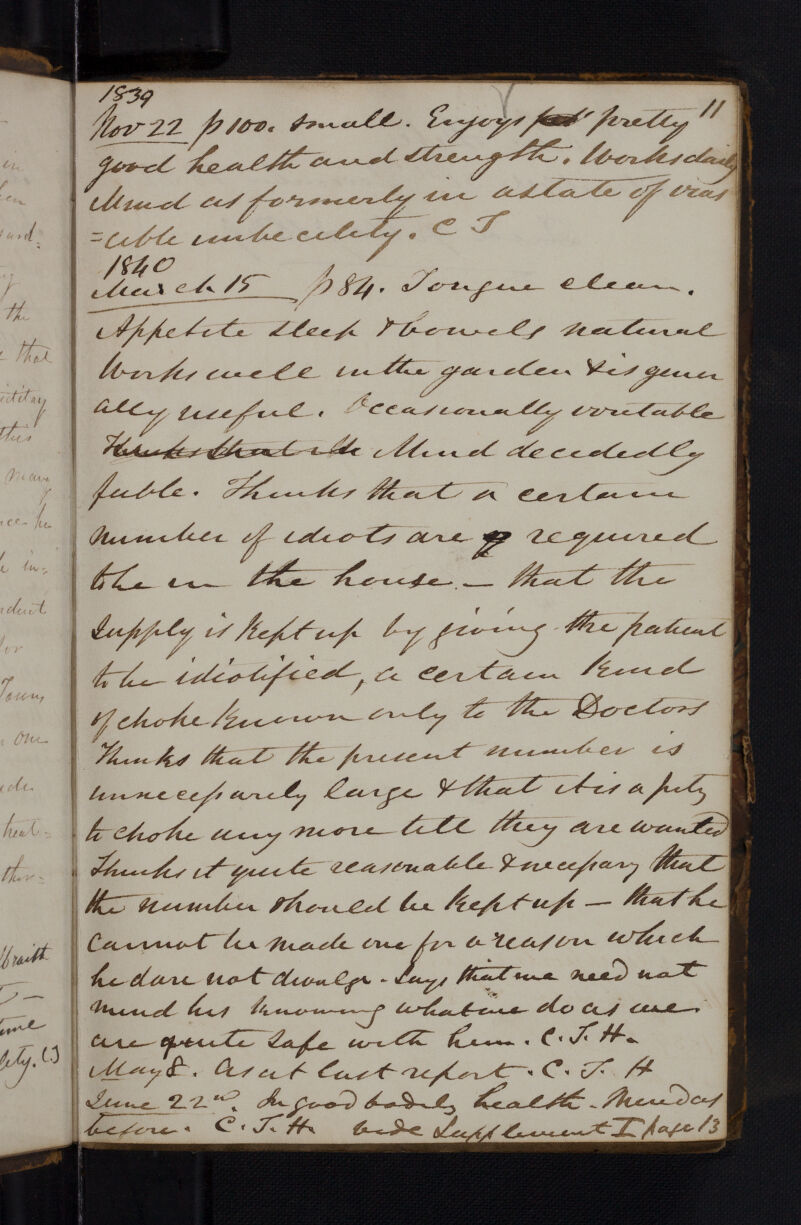 1839 11
Nov 22 p 100. small. Enjoys pretty
good health and strength. Works daily
Mind as formerly in a state of irras
=cible imbecility. C T
1840
March 15 p 84. Tongue clean.
Appetite sleep & bowels natural
Works well in the garden & is gener
ally useful. Occasionally irritable
Thinks that the Mind decidedly
feeble. Thinks that a certain
number of idiots are required
to be in the house - that the
supply is kept up by giving the patient
to be idiotified, a certain kind
of choke known only to the Doctors
Thinks that the present number is
unnecessarily large & that it is a pity
to choke any more till they are wanted
Thinks it quite reasonable & necessary that
the number should be kept up - that he
cannot be made one for a reason which
he dare not divulge - Says that we need not
mind his knowing what we do as we
are quite safe with him. C. T. H.
May 8. As at last report. C. T. H
June 22nd. In good bodily health. Mind as
before. C. T. H. vide Supplement I page 13
in
the
that
this
many
in=
for
one
heat=
time